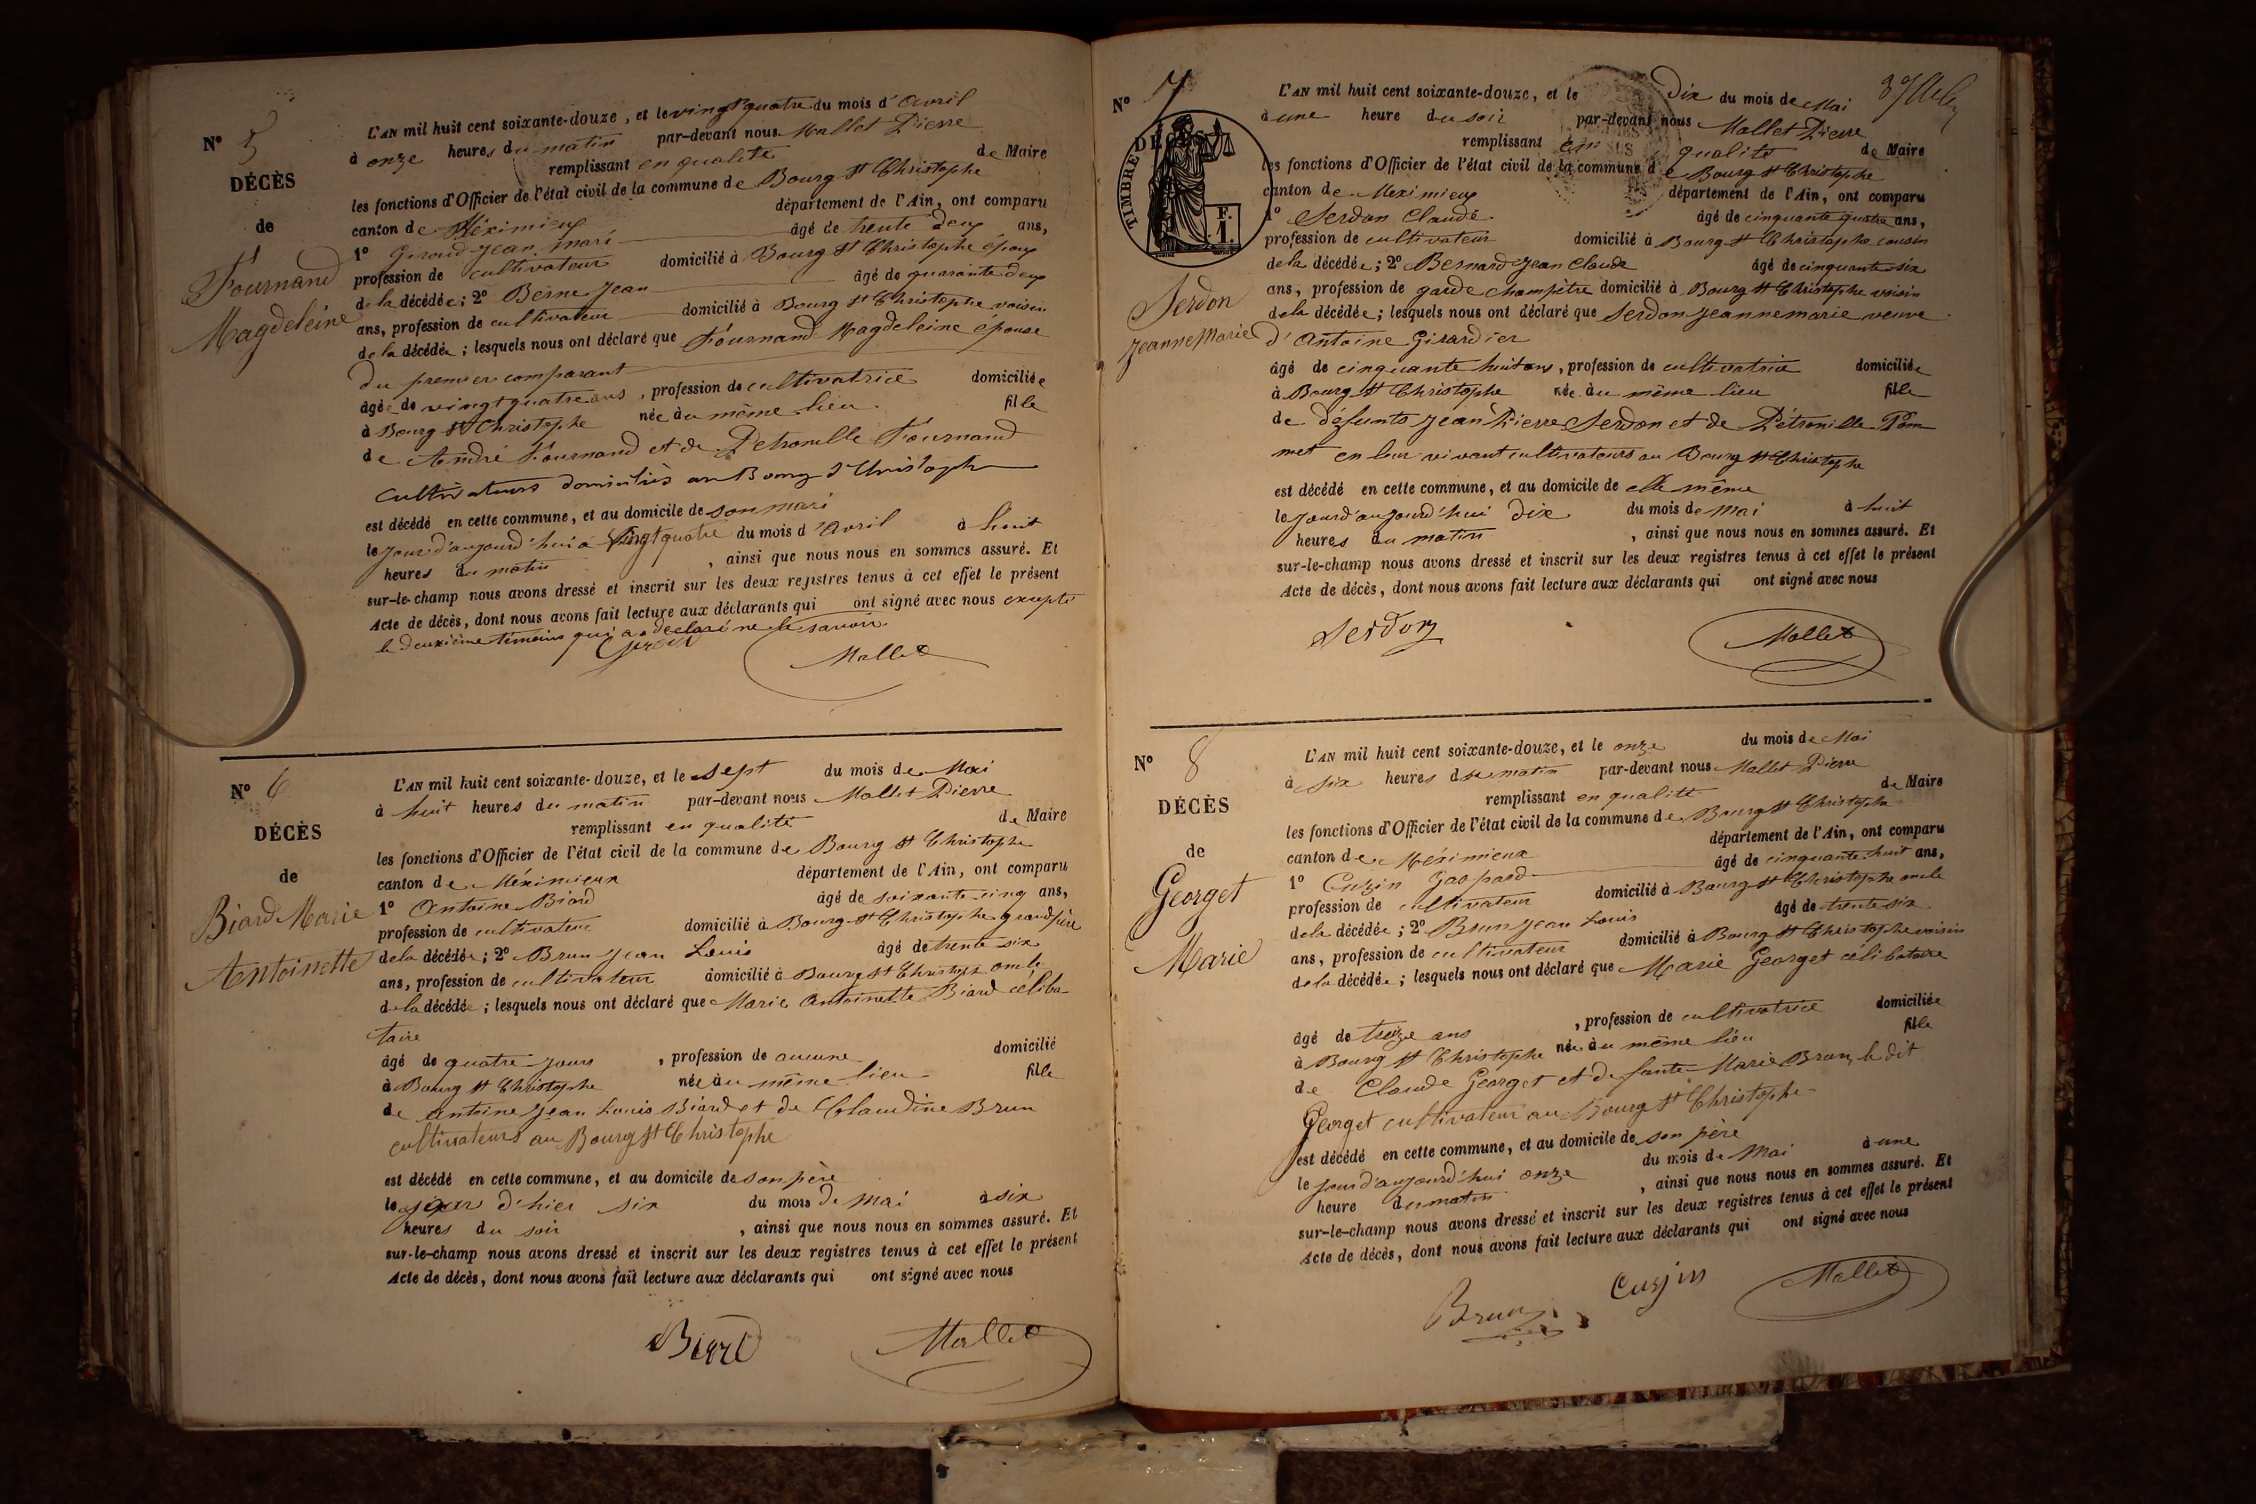 N° 5
DÉCÈS
de
Fournand
Magdeleine
L'AN mil huit cent soixante-douze, et le vingt quatre du mois d'Avril
à onze heures du matin par-devant nous Mallet Pierre
remplissant en qualité de Maire
les fonctions d'Officier de l'état civil de la commune de Bourg St Christophe
canton de Méximieux département de l'Ain, ont comparu
1° Giroud Jean Mari âgé de trente deux ans,
profession de cultivateur domicilié à Bourg St Christophe époux
de la décédée; 2° Berne Jean âgé de quarante deux
ans, profession de cultivateur domicilié à Bourg St Christophe voisin
de la décédée; lesquels nous ont déclaré que Fournand Magdeleine épouse
du premier comparant
âgée de vingt quatre ans, profession de cultivatrice domiciliée
à Bourg St Christophe née au même lieu fille
de André Fournand et de Petronille Fournand
cultivateurs domiciliés au Bourg St Christophe
est décédé en cette commune, et au domicile de son mari
le jour d'aujourd'hui à vingt quatre du mois d'Avril à huit
heures du matin, ainsi que nous nous en sommes assuré. Et
sur-le-champ nous avons dressé et inscrit sur les deux registres tenus à cet effet le présent
Acte de décès, dont nous avons fait lecture aux déclarants qui ont signé avec nous excepté
le deuxième témoins qui a déclaré ne le savoir
Mallet
N° 6
DÉCÈS
de
Biard Marie
Antoinette
L'AN mil huit cent soixante-douze, et le sept du mois de Mai
à huit heures du matin par-devant nous Mallet Pierre
remplissant en qualité de Maire
les fonctions d'Officier de l'état civil de la commune de Bourg St Christophe
canton de Méximieux département de l'Ain, ont comparu
1° Antoine Biard âgé de soixante cinq ans,
profession de cultivateur domicilié à Bourg St Christophe grand père
de la décédée; 2° Brun Jean Louis âgé de trente six
ans, profession de cultivateur domicilié à Bourg St Christophe oncle
de la décédée; lesquels nous ont déclaré que Marie Antoinette Biard céliba-
taire
âgé de quatre jours, profession de aucune domicilié
à Bourg St Christophe née au même lieu fille
de Antoine Jean Louis Biard et de Claudine Brun
cultivateurs au Bourg St Christophe
est décédé en cette commune, et au domicile de son père
le jour d'hier six du mois de Mai à six
heures du soir, ainsi que nous nous en sommes assuré. Et
sur-le-champ nous avons dressé et inscrit sur les deux registres tenus à cet effet le présent
Acte de décès, dont nous avons fait lecture aux déclarants qui ont signé avec nous
Biard Mallet
N° 7
TIMBRE DÉCÈS
F. I.
Serdon
Jeanne Marie
L'AN mil huit cent soixante-douze, et le Dix du mois de Mai
à une heure du soir par-devant nous Mallet Pierre
remplissant en qualité de Maire
les fonctions d'Officier de l'état civil de la commune de Bourg St Christophe
canton de Meximieux département de l'Ain, ont comparu
1° Serdon Claude âgé de cinquante quatre ans,
profession de cultivateur domicilié à Bourg St Christophe cousin
de la décédée; 2° Bernard Jean Claude âgé de cinquante six
ans, profession de garde champêtre domicilié à Bourg St Christophe voisin
de la décédée; lesquels nous ont déclaré que Serdon Jeanne marie veuve
d'Antoine Girardier
âgé de cinquante huit ans, profession de cultivatrice domiciliée
à Bourg St Christophe née au même lieu fille
de défunts Jean Pierre Serdon et de Pétronille Pom
met en leur vivant cultivateurs au Bourg St Christophe
est décédé en cette commune, et au domicile de elle même
le jour d'aujourd'hui dix du mois de Mai à huit
heures du matin, ainsi que nous nous en sommes assuré. Et
sur-le-champ nous avons dressé et inscrit sur les deux registres tenus à cet effet le présent
Acte de décès, dont nous avons fait lecture aux déclarants qui ont signé avec nous
Serdon Mallet
N° 8
DÉCÈS
de
Georget
Marie
L'AN mil huit cent soixante-douze, et le onze du mois de Mai
à six heures du matin par-devant nous Mallet Pierre
remplissant en qualité de Maire
les fonctions d'Officier de l'état civil de la commune de Bourg St Christophe
canton de Méximieux département de l'Ain, ont comparu
1° Cuzin Gaspard âgé de cinquante huit ans,
profession de cultivateur domicilié à Bourg St Christophe oncle
de la décédée; 2° Brun Jean Louis âgé de trente six
ans, profession de cultivateur domicilié à Bourg St Christophe voisin
de la décédée; lesquels nous ont déclaré que Marie Georget célibataire
âgé de treize ans, profession de cultivatrice domiciliée
à Bourg St Christophe née au même lieu fille
de Claude Georget et de fante Marie Brun, le dit
Georget cultivateur au Bourg St Christophe
est décédé en cette commune, et au domicile de son père
le jour d'aujourd'hui onze du mois de Mai à une
heure du matin, ainsi que nous nous en sommes assuré. Et
sur-le-champ nous avons dressé et inscrit sur les deux registres tenus à cet effet le présent
Acte de décès, dont nous avons fait lecture aux déclarants qui ont signé avec nous
Brun Cuzin Mallet